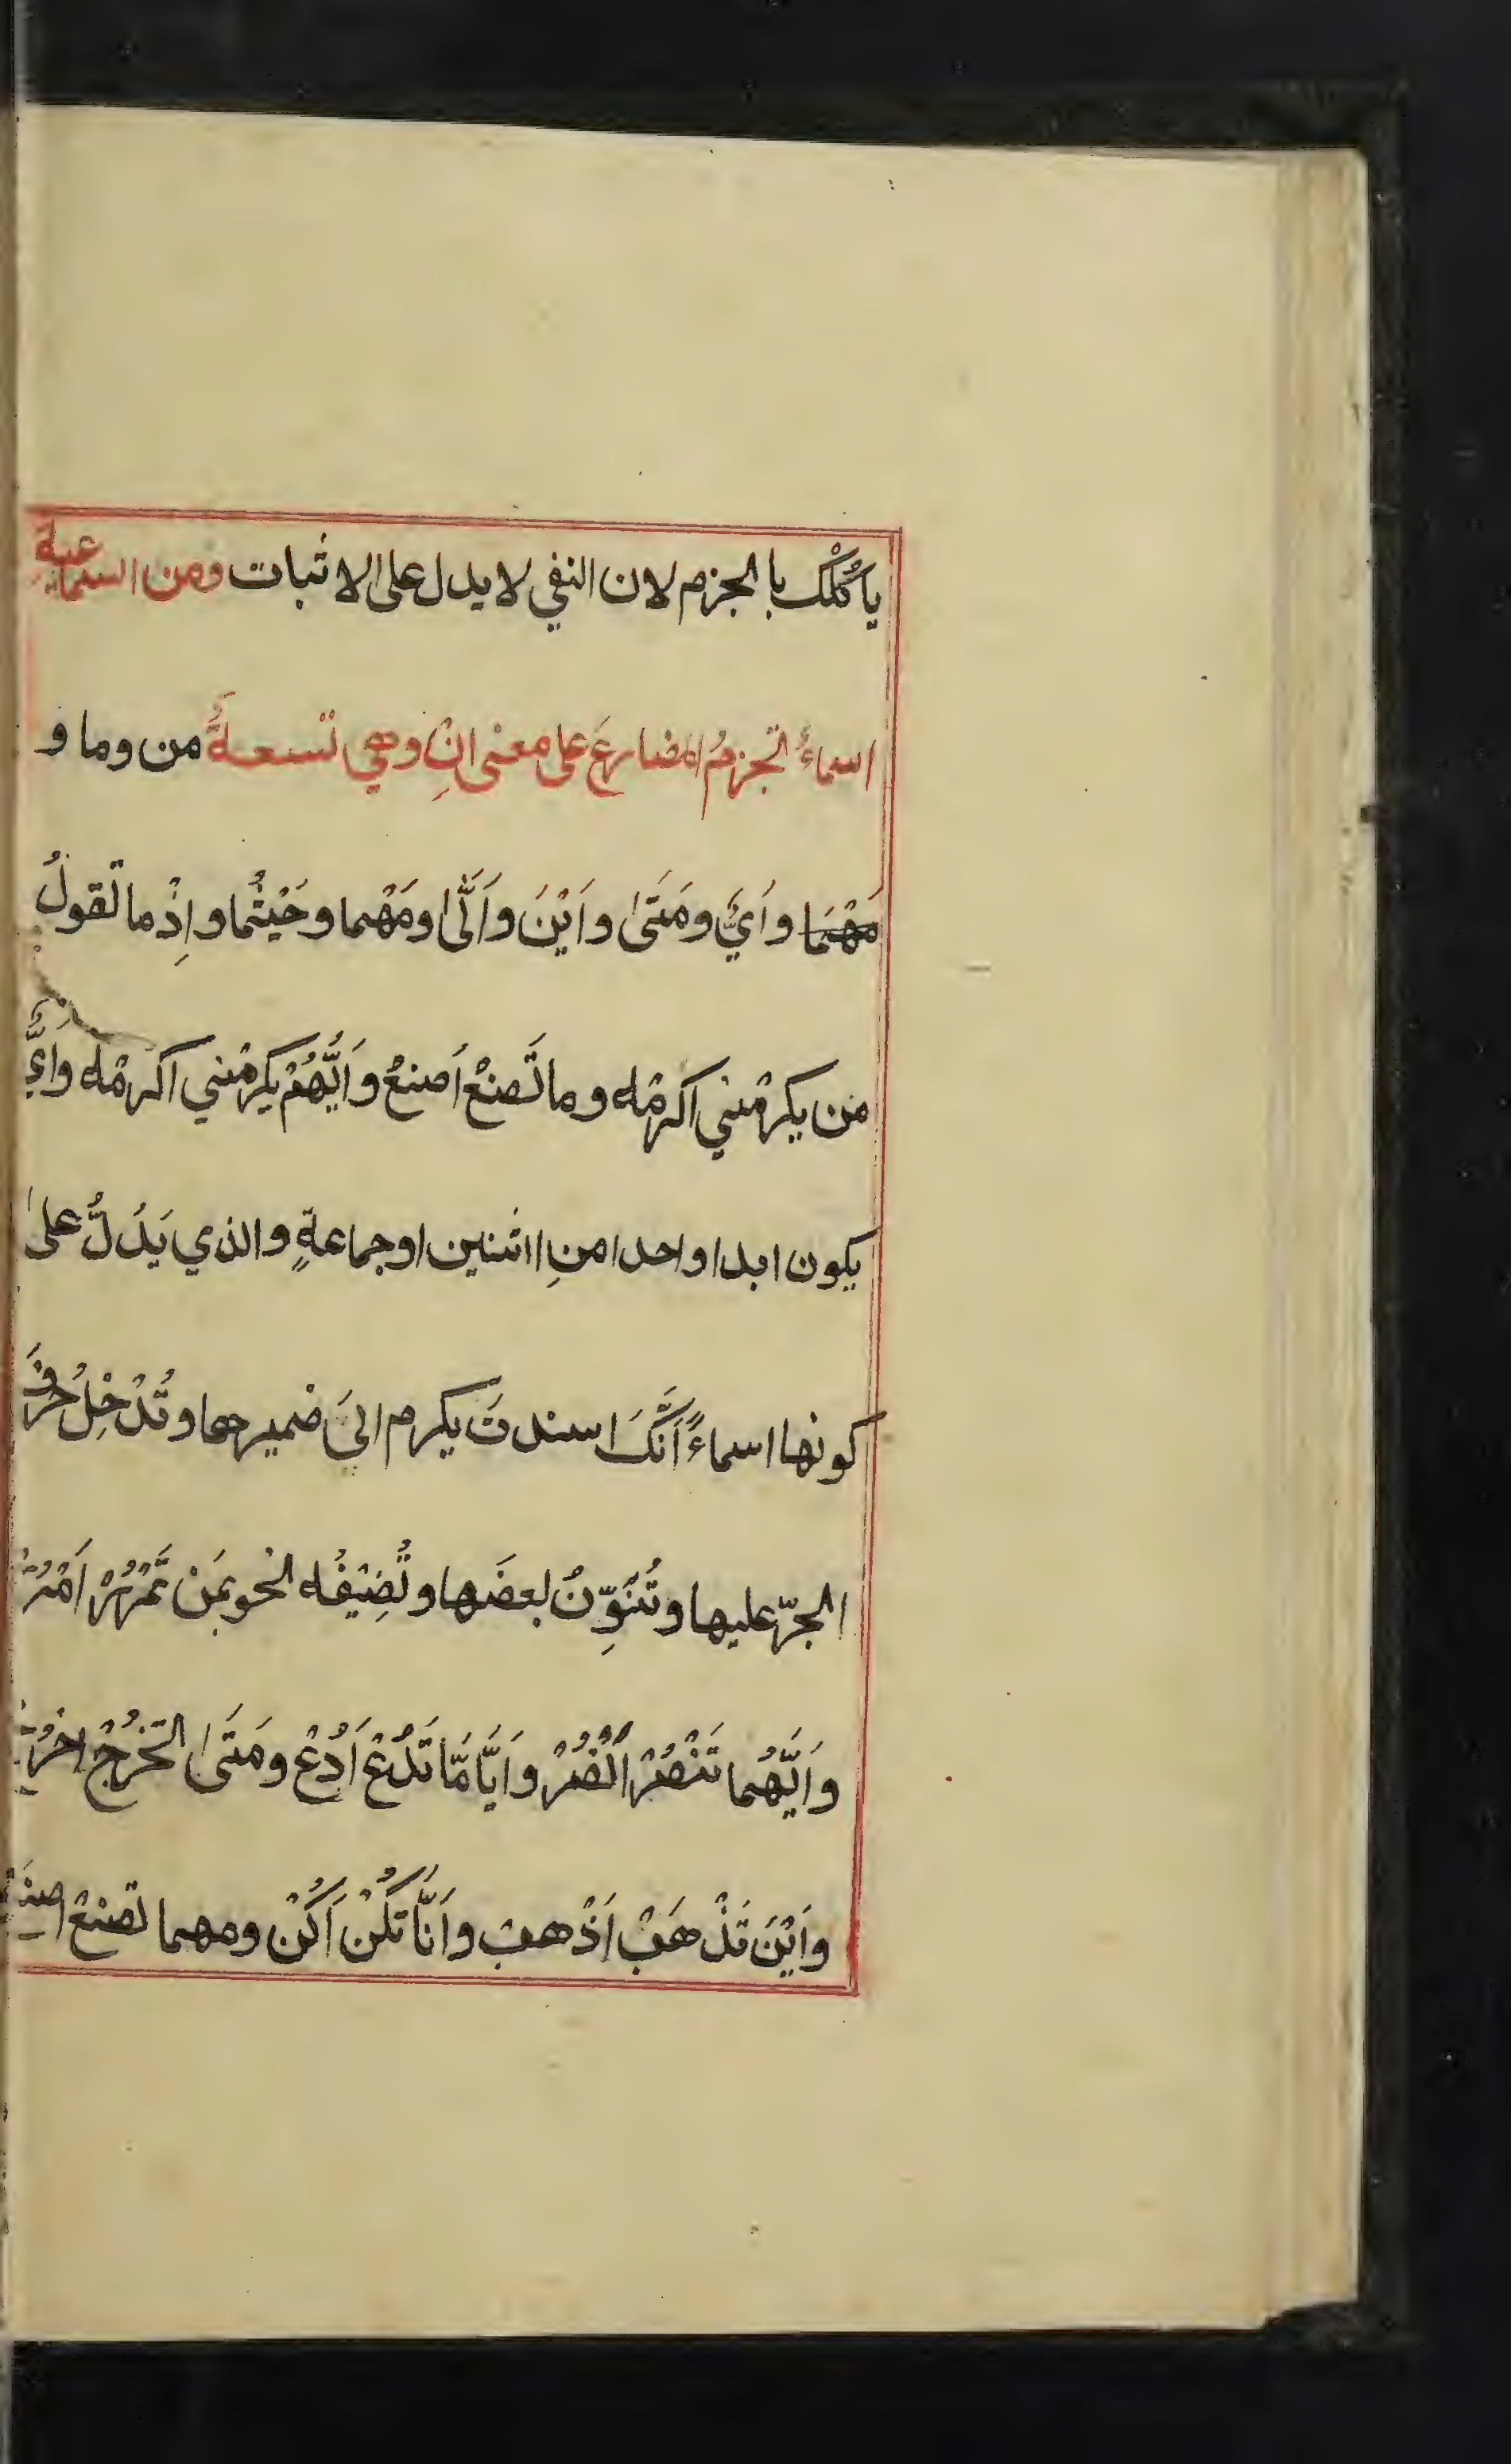 ياكُلْك بالجزم لان النفي لا يدل على الاثبات ومن السماعية
اسماءُ تجزمُ المضارعَ على معنى انِ وهي تسعةٌ من وما و
مَهْمَا وَاَيٌّ ومَتَىٰ واَيْنَ واَنَّىٰ ومَهْما وحَيْثُما واِذْما تقولُ
من يكرمْني اكرمْه وما تَصنعْ اَصنعْ واَيُّهُمْ يكرمْني اكرمْه وَاَيٌّ
يكون ابدا واحدا منِ اثنين او جماعةٍ والذي يَدُلُّ على
كونها اسماءً اَنَّكَ اسندتَ يكرم الىَ ضميرها وتُدْخِلُ حرفَ
الجرّ عليها وتُنَوِّنُ بعضَها وتُضِيْفُه نحو بمَنْ تَمْرُرْ اَمْرُرْ
واَيُّهُما تَنْصُرْ اَنْصُرْ واَيًّا مَّا تَدْعُ اَدْعُ ومَتَىٰ تخرُجْ اخرُجْ
واَيْنَ تَذْهَبْ اَذْهبْ واَنَّا تَكُنْ اَكُنْ ومهما تصنعْ اصنعْ